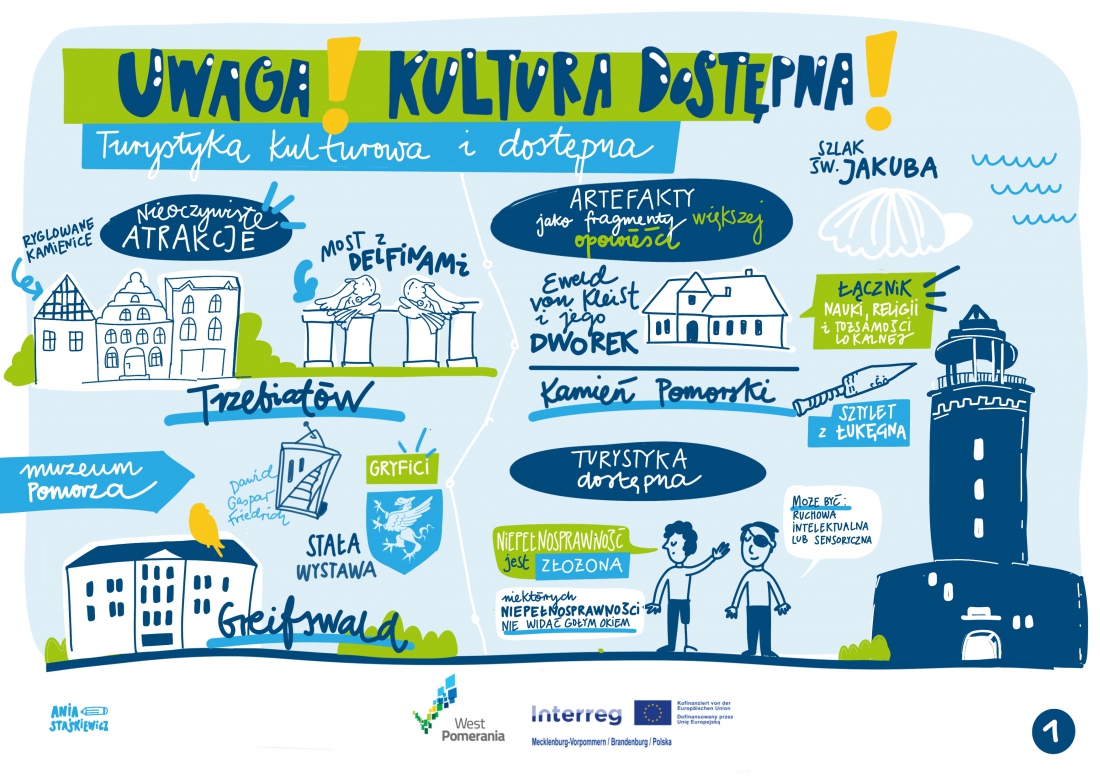 UWAGA! KULTURA DOSTĘPNA!
Turystyka kulturowa i dostępna
Nieoczywiste
ATRAKCJE
RYGLOWANE
KAMIENICE
MOST Z
DELFINAMI
Trzebiatów
ARTEFAKTY
jako fragmenty większej
opowieści
Eweld
von Kleist
i jego
DWOREK
Kamień Pomorski
SZLAK
ŚW. JAKUBA
ŁĄCZNIK
NAUKI, RELIGII
i TOŻSAMOŚCI
LOKALNEJ
SZTYLET
z ŁUKĘGNA
muzeum
Pomorza
Dawid
Gaspar
Friedrich
GRYFICI
STAŁA
WYSTAWA
Greifswald
TURYSTYKA
dostępna
NIEPEŁNOSPRAWNOŚĆ
jest ZŁOŻONA
niektórych
NIEPEŁNOSPRAWNOŚCI
NIE WIDAĆ GOŁYM OKIEM
MOŻE BYĆ:
RUCHOWA
INTELEKTUALNA
LUB SENSORYCZNA
ANIA
STAŚKIEWICZ
West
Pomerania
Interreg
Kofinanziert von der
Europäischen Union
Dofinansowany przez
Unię Europejską
Mecklenburg-Vorpommern / Brandenburg / Polska
1